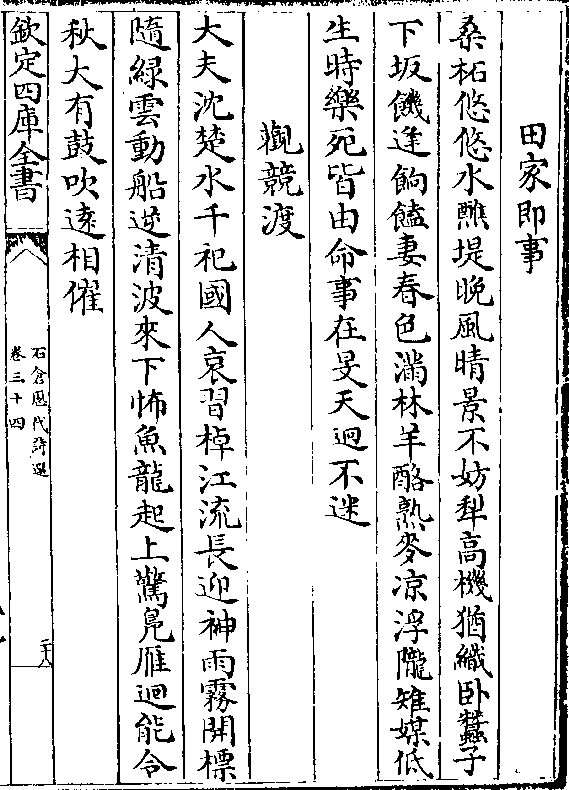 田家即事
桑柘悠悠水蘸堤晚風晴景不妨犁高機猶織卧蠶子
下坂饑逢餉饁妻春色滿林羊酪熟麥凉浮隴雉媒低
生時樂死皆由命事在旻天迥不迷
觀競渡
大夫沈楚水千祀國人哀習棹江流長迎神雨霧開標
隨緑雲動船逆清波來下怖魚龍起上驚鳬雁迴能令
秋大有鼓吹逺相催
欽定四庫全書
石倉歷代詩選
卷三十四
二十八